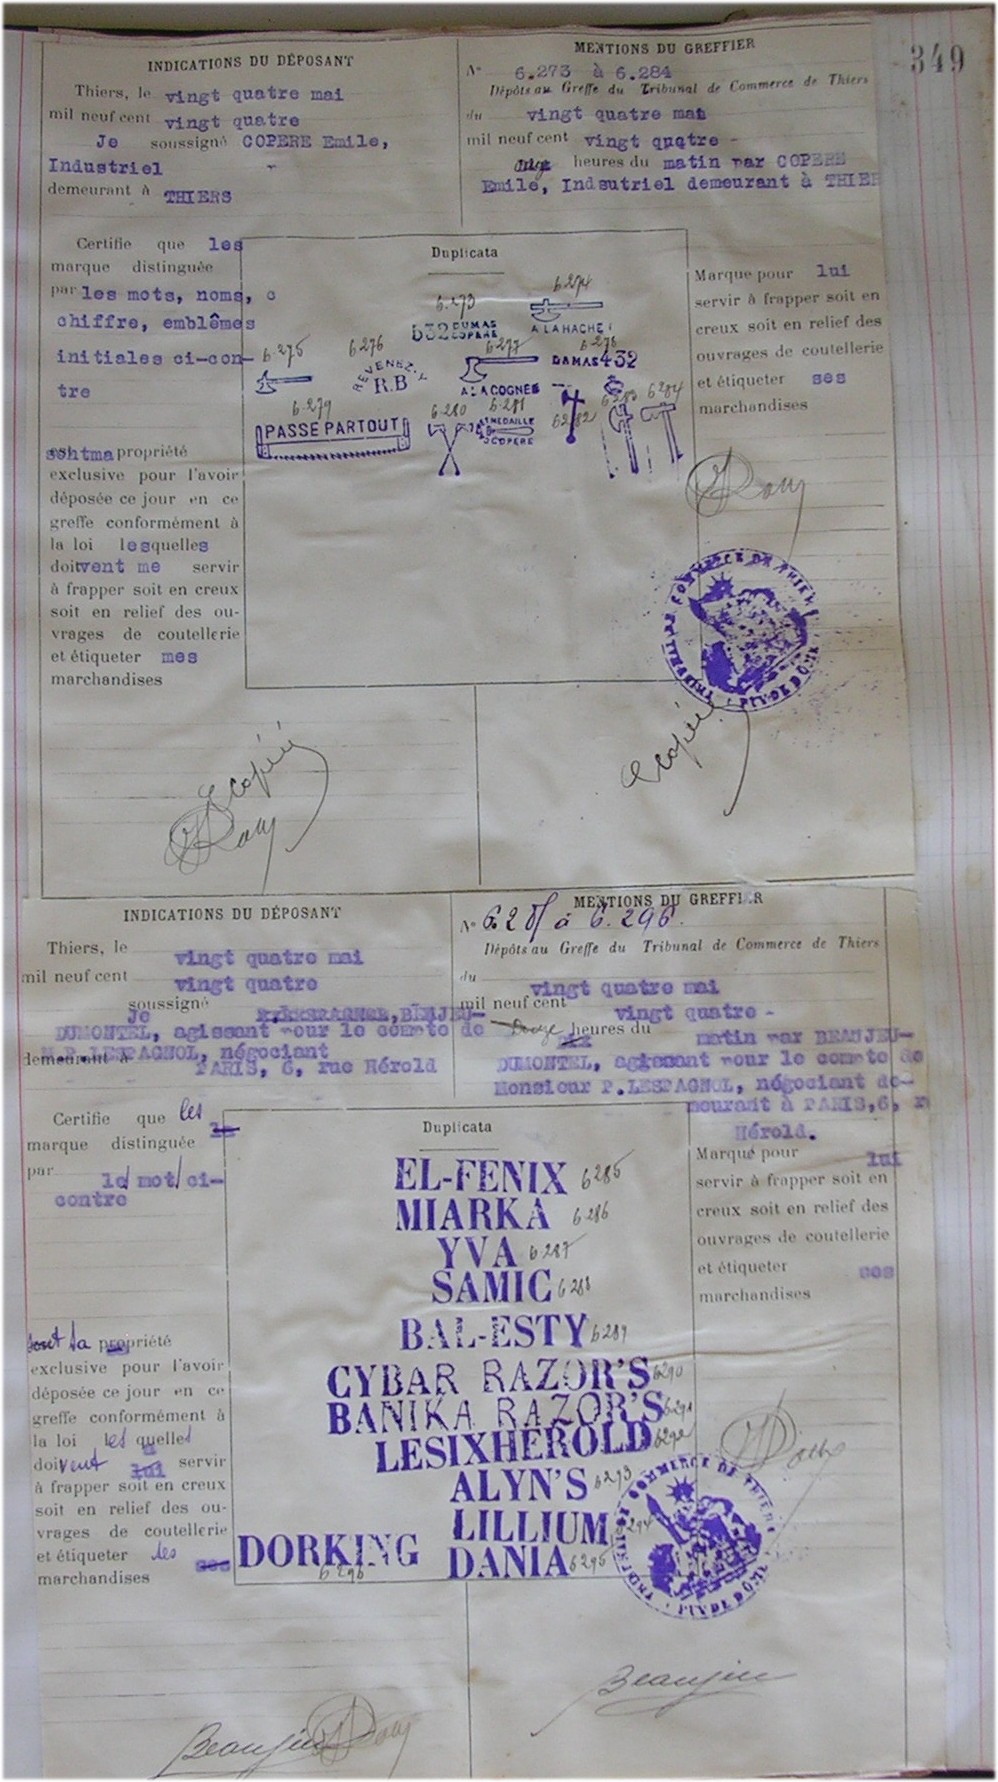 349
INDICATIONS DU DÉPOSANT
Thiers, le vingt quatre mai
mil neuf cent vingt quatre
Je soussigné COPERE Emile,
Industriel
demeurant à THIERS
MENTIONS DU GREFFIER
N° 6.273 à 6.284
Dépôts au Greffe du Tribunal de Commerce de Thiers
du vingt quatre mai
mil neuf cent vingt quatre -
heures du matin par COPERE
Emile, Indsutriel demeurant à THIER
Certifie que les
marque distinguée
par les mots, noms, c
chiffre, emblêmes
initiales ci-con-
tre
propriété
exclusive pour l'avoir
déposée ce jour en ce
greffe conformément à
la loi lesquelles
doivent me servir
à frapper soit en creux
soit en relief des ou-
vrages de coutellerie
et étiqueter mes
marchandises
Duplicata
6.273
532 DUMAS
COPERE
6.274
A LA HACHE
6.275
6.276
REVENEZ-Y
R.B
6.277
A LA COGNÉE
6.278
DAMAS 432
6.279
PASSE PARTOUT
6.280
6.281
MEDAILLE
COPERE
6.282
6.283
6.284
Marque pour lui
servir à frapper soit en
creux soit en relief des
ouvrages de coutellerie
et étiqueter ses
marchandises
TRIBUNAL DE COMMERCE DE THIERS
PUY DE DÔME
INDICATIONS DU DÉPOSANT
Thiers, le vingt quatre mai
mil neuf cent vingt quatre
Je soussigné BEAUJEU-
DUMONTEL, agissant pour le compte de
M.P.LESPAGNOL, négociant
demeurant à PARIS, 6, rue Hérold
MENTIONS DU GREFFIER
N° 6.285 à 6.296
Dépôts au Greffe du Tribunal de Commerce de Thiers
du vingt quatre mai
mil neuf cent vingt quatre -
heures du matin par BEAUJEU-
DUMONTEL, agissant pour le compte de
Monsieur P.LESPAGNOL, négociant de-
meurant à PARIS,6, r
Hérold.
Certifie que les
marque distinguée
par le mot ci-
contre
sont sa propriété
exclusive pour l'avoir
déposée ce jour en ce
greffe conformément à
la loi lesquelles
doivent lui servir
à frapper soit en creux
soit en relief des ou-
vrages de coutellerie
et étiqueter les ses
marchandises
Duplicata
EL-FENIX 6285
MIARKA 6286
YVA 6287
SAMIC 6288
BAL-ESTY 6289
CYBAR RAZOR'S 6290
BANIKA RAZOR'S 6291
LESIXHEROLD 6292
ALYN'S 6293
LILLIUM 6294
DANIA 6295
DORKING
6296
Marque pour lui
servir à frapper soit en
creux soit en relief des
ouvrages de coutellerie
et étiqueter ses
marchandises
TRIBUNAL DE COMMERCE DE THIERS
PUY DE DÔME
Beaujeu
Beaujeu